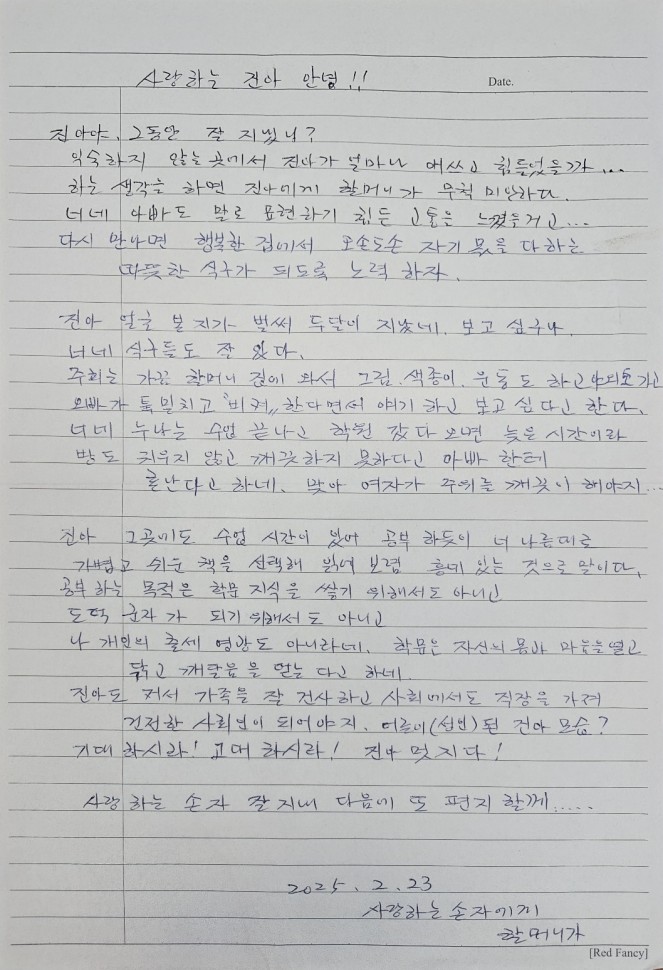 사랑하는 진아 안녕!!
Date.
진아야. 그동안 잘 지냈니?
익숙하지 않는 곳에서 진아가 얼마나 애쓰고 힘들었을까...
하는 생각을 하면 진아에게 할머니가 무척 미안하다.
너네 아빠도 말로 표현하기 힘든 고통을 느꼈을거고...
다시 만나면 행복한 집에서 오손도손 자기 몫을 다하는
따뜻한 식구가 되도록 노력 하자.
진아 얼굴 본 지가 벌써 두달이 지났네. 보고 싶구나.
너네 식구들도 잘 있다.
주희는 가끔 할머니 집에 와서 그림. 색종이. 운동도 하고
오빠가 툭 밀치고 "비켜" 한다면서 얘기 하고 보고 싶다고 한다.
너네 누나는 수업 끝나고 학원 갔다 오면 늦은 시간이라
방도 치우지 않고 깨끗하지 못하다고 아빠 한테
혼난다고 하네. 맞아 여자가 주위를 깨끗이 해야지...
진아 그곳에도 수업 시간이 있어 공부 하듯이 너 나름대로
가볍고 쉬운 책을 선택해 읽어 보렴 흥미 있는 것으로 말이다.
공부 하는 목적은 학문 지식을 쌓기 위해서도 아니고
도덕 군자가 되기 위해서도 아니고
나 개인의 출세 영광도 아니라네. 학문은 자신의 몸과 마음을 떨고
닦고 깨달음을 얻는 다고 하네.
진아도 커서 가족을 잘 건사하고 사회에서도 직장을 가져
건전한 사회인이 되어야지. 어른이(성인)된 진아 모습?
기대 하시라! 고대 하시라! 진아 멋지다!
사랑 하는 손자 잘 지내 다음에 또 편지 할께.....
2025. 2. 23
사랑하는 손자에게
할머니가
[Red Fancy]